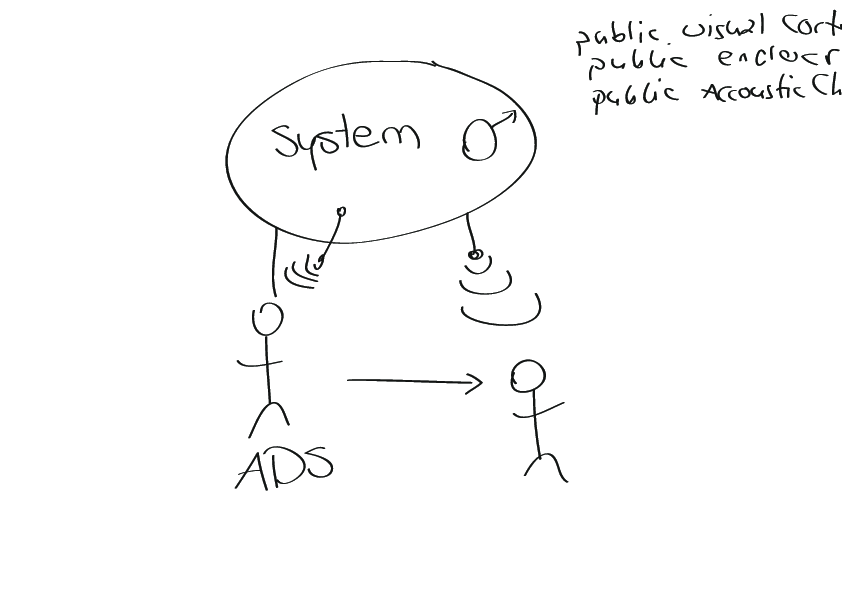 public visual Cort
public enclavr
public AccousticCh
System
ADS